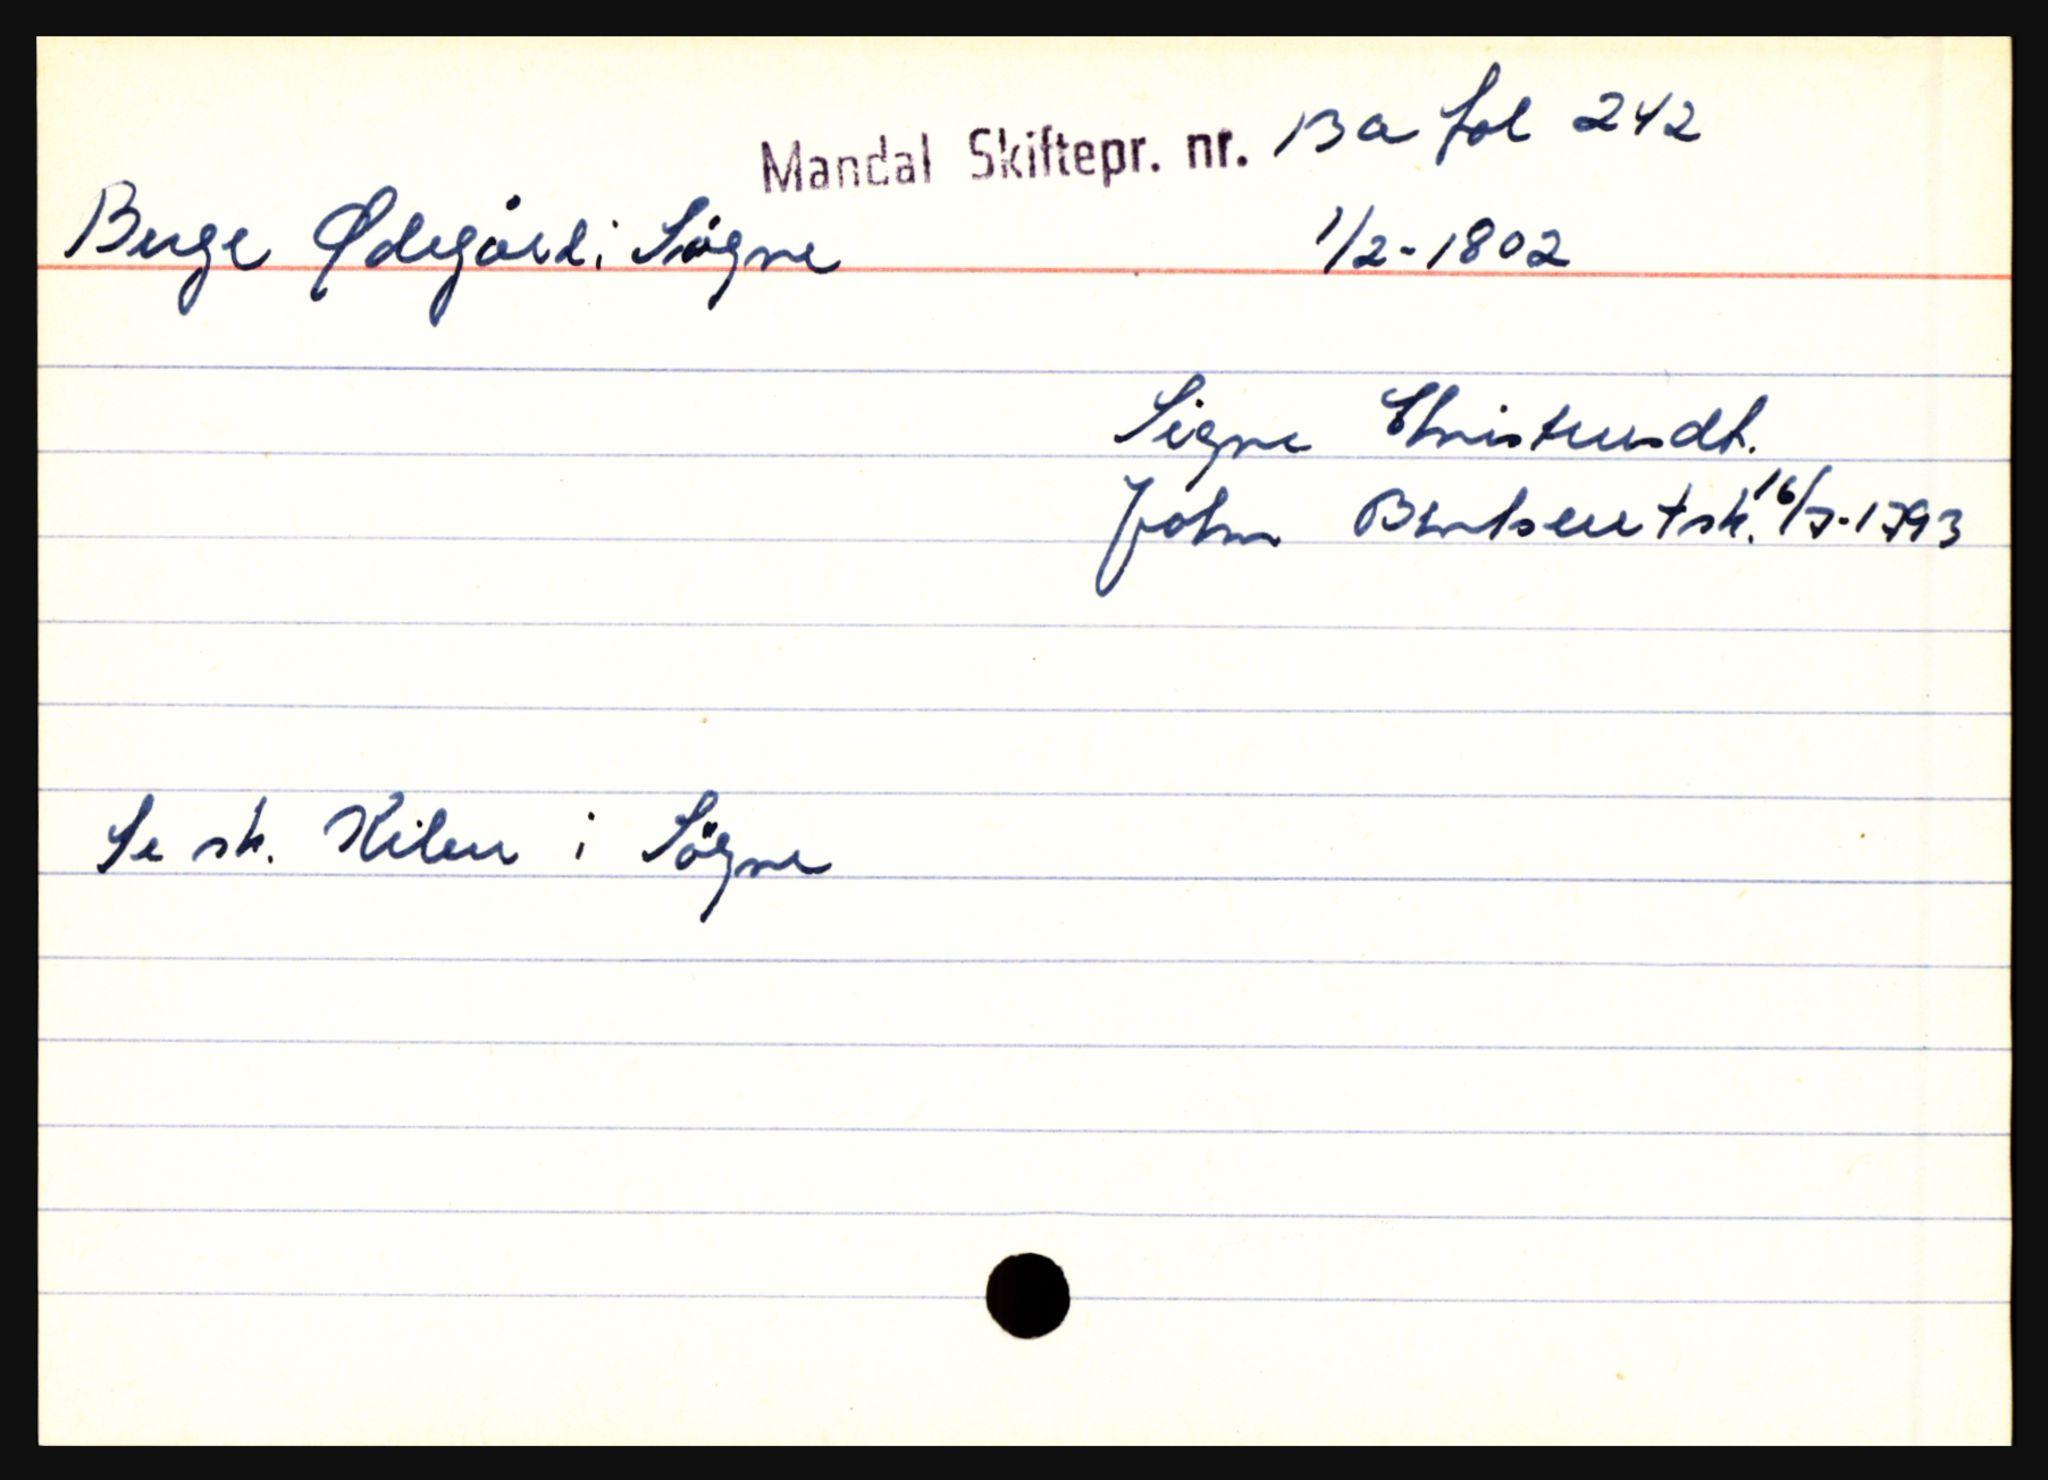 Mandal Skiftepr. nr. 13 a fol 242
Berge Ødegård i Søgne 1/2-1802
Signe Christensdt.
John Berntsen † sk. 16/7-1793
Se sk. Kilen i Søgne